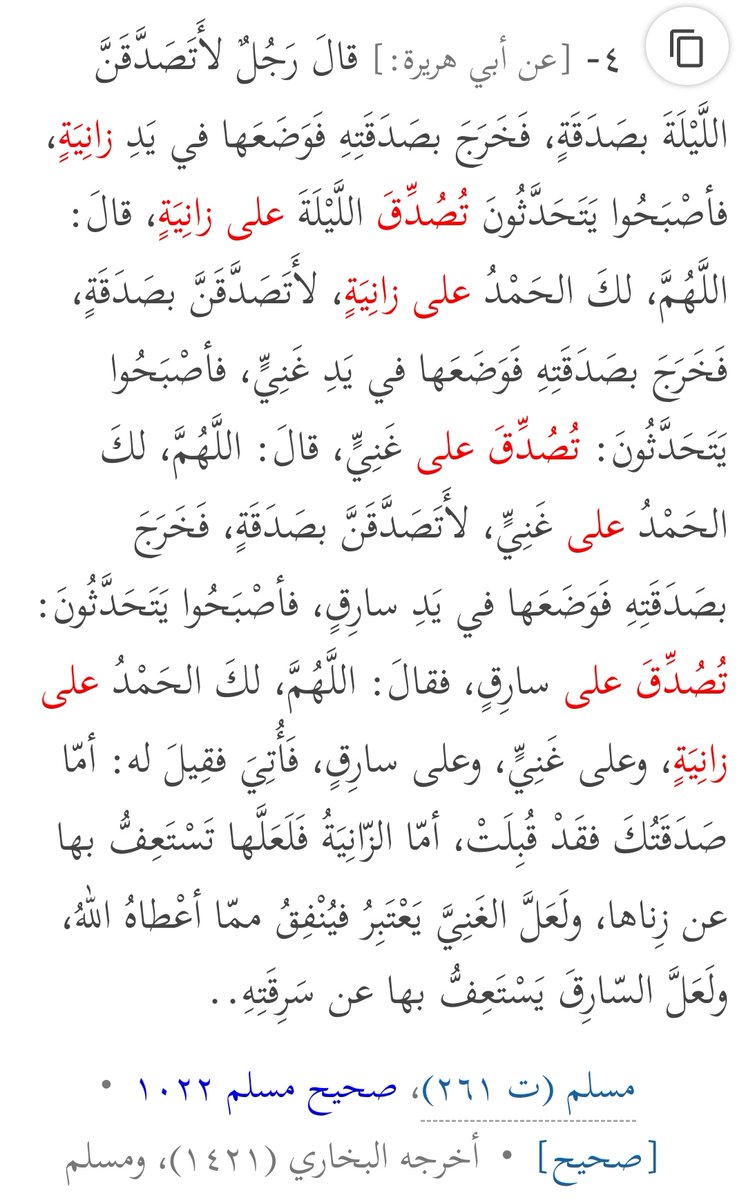 ٤- [عن أبي هريرة:] قالَ رَجُلٌ لأَتَصَدَّقَنَّ
اللَّيْلَةَ بصَدَقَةٍ، فَخَرَجَ بصَدَقَتِهِ فَوَضَعَها في يَدِ زانِيَةٍ،
فأصْبَحُوا يَتَحَدَّثُونَ تُصُدِّقَ اللَّيْلَةَ على زانِيَةٍ، قالَ:
اللَّهُمَّ، لكَ الحَمْدُ على زانِيَةٍ، لأَتَصَدَّقَنَّ بصَدَقَةٍ،
فَخَرَجَ بصَدَقَتِهِ فَوَضَعَها في يَدِ غَنِيٍّ، فأصْبَحُوا
يَتَحَدَّثُونَ: تُصُدِّقَ على غَنِيٍّ، قالَ: اللَّهُمَّ، لكَ
الحَمْدُ على غَنِيٍّ، لأَتَصَدَّقَنَّ بصَدَقَةٍ، فَخَرَجَ
بصَدَقَتِهِ فَوَضَعَها في يَدِ سارِقٍ، فأصْبَحُوا يَتَحَدَّثُونَ:
تُصُدِّقَ على سارِقٍ، فقالَ: اللَّهُمَّ، لكَ الحَمْدُ على
زانِيَةٍ، وعلى غَنِيٍّ، وعلى سارِقٍ، فَأُتِيَ فقِيلَ له: أمّا
صَدَقَتُكَ فقَدْ قُبِلَتْ، أمّا الزّانِيَةُ فَلَعَلَّها تَسْتَعِفُّ بها
عن زِناها، ولَعَلَّ الغَنِيَّ يَعْتَبِرُ فيُنْفِقُ ممّا أعْطاهُ اللهُ،
ولَعَلَّ السّارِقَ يَسْتَعِفُّ بها عن سَرِقَتِهِ..
مسلم (ت ٢٦١)، صحيح مسلم ١٠٢٢ •
[صحيح] • أخرجه البخاري (١٤٢١)، ومسلم